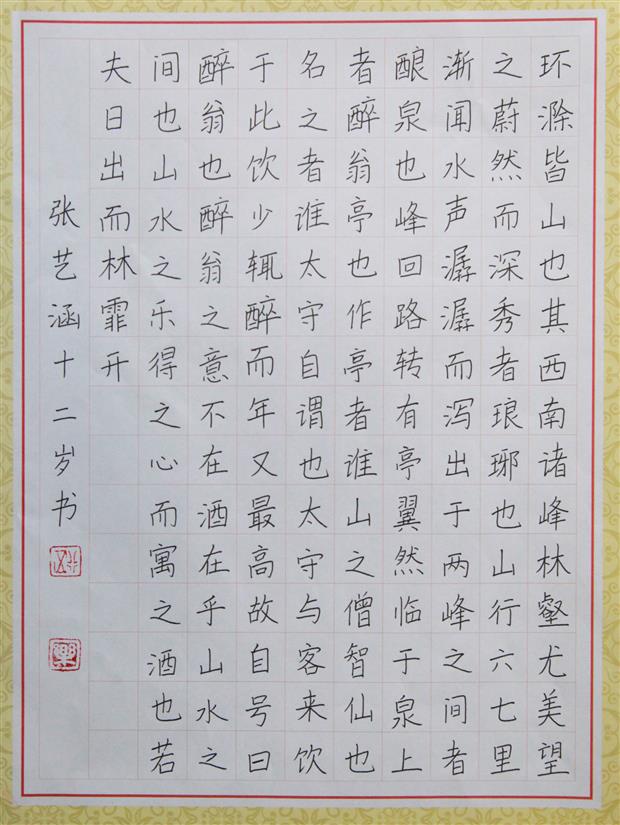 环滁皆山也其西南诸峰林壑尤美望
之蔚然而深秀者琅琊也山行六七里
渐闻水声潺潺而泻出于两峰之间者
酿泉也峰回路转有亭翼然临于泉上
者醉翁亭也作亭者谁山之僧智仙也
名之者谁太守自谓也太守与客来饮
于此饮少辄醉而年又最高故自号曰
醉翁也醉翁之意不在酒在乎山水之
间也山水之乐得之心而寓之酒也若
夫日出而林霏开
张艺涵十二岁书